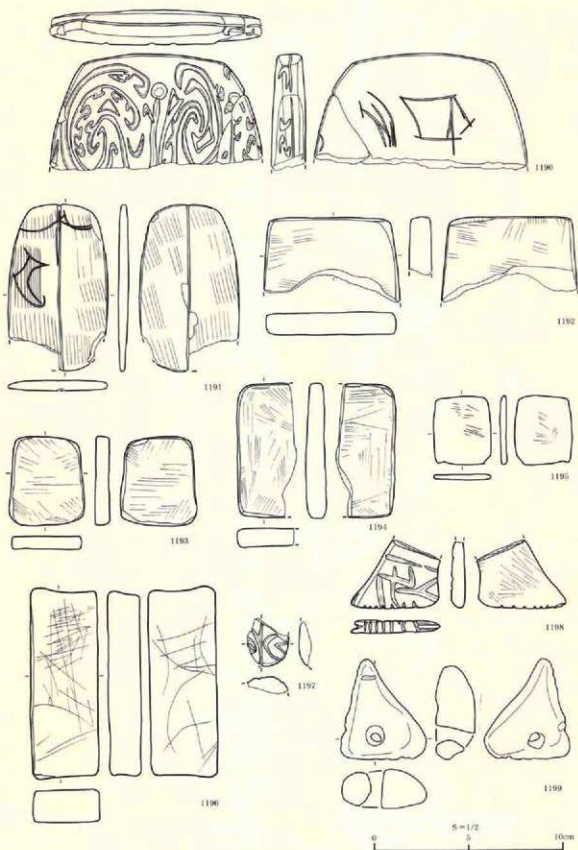 1190
1191
1192
1193
1194
1195
1196
1197
1198
1199
S=1/2
0 5 10cm